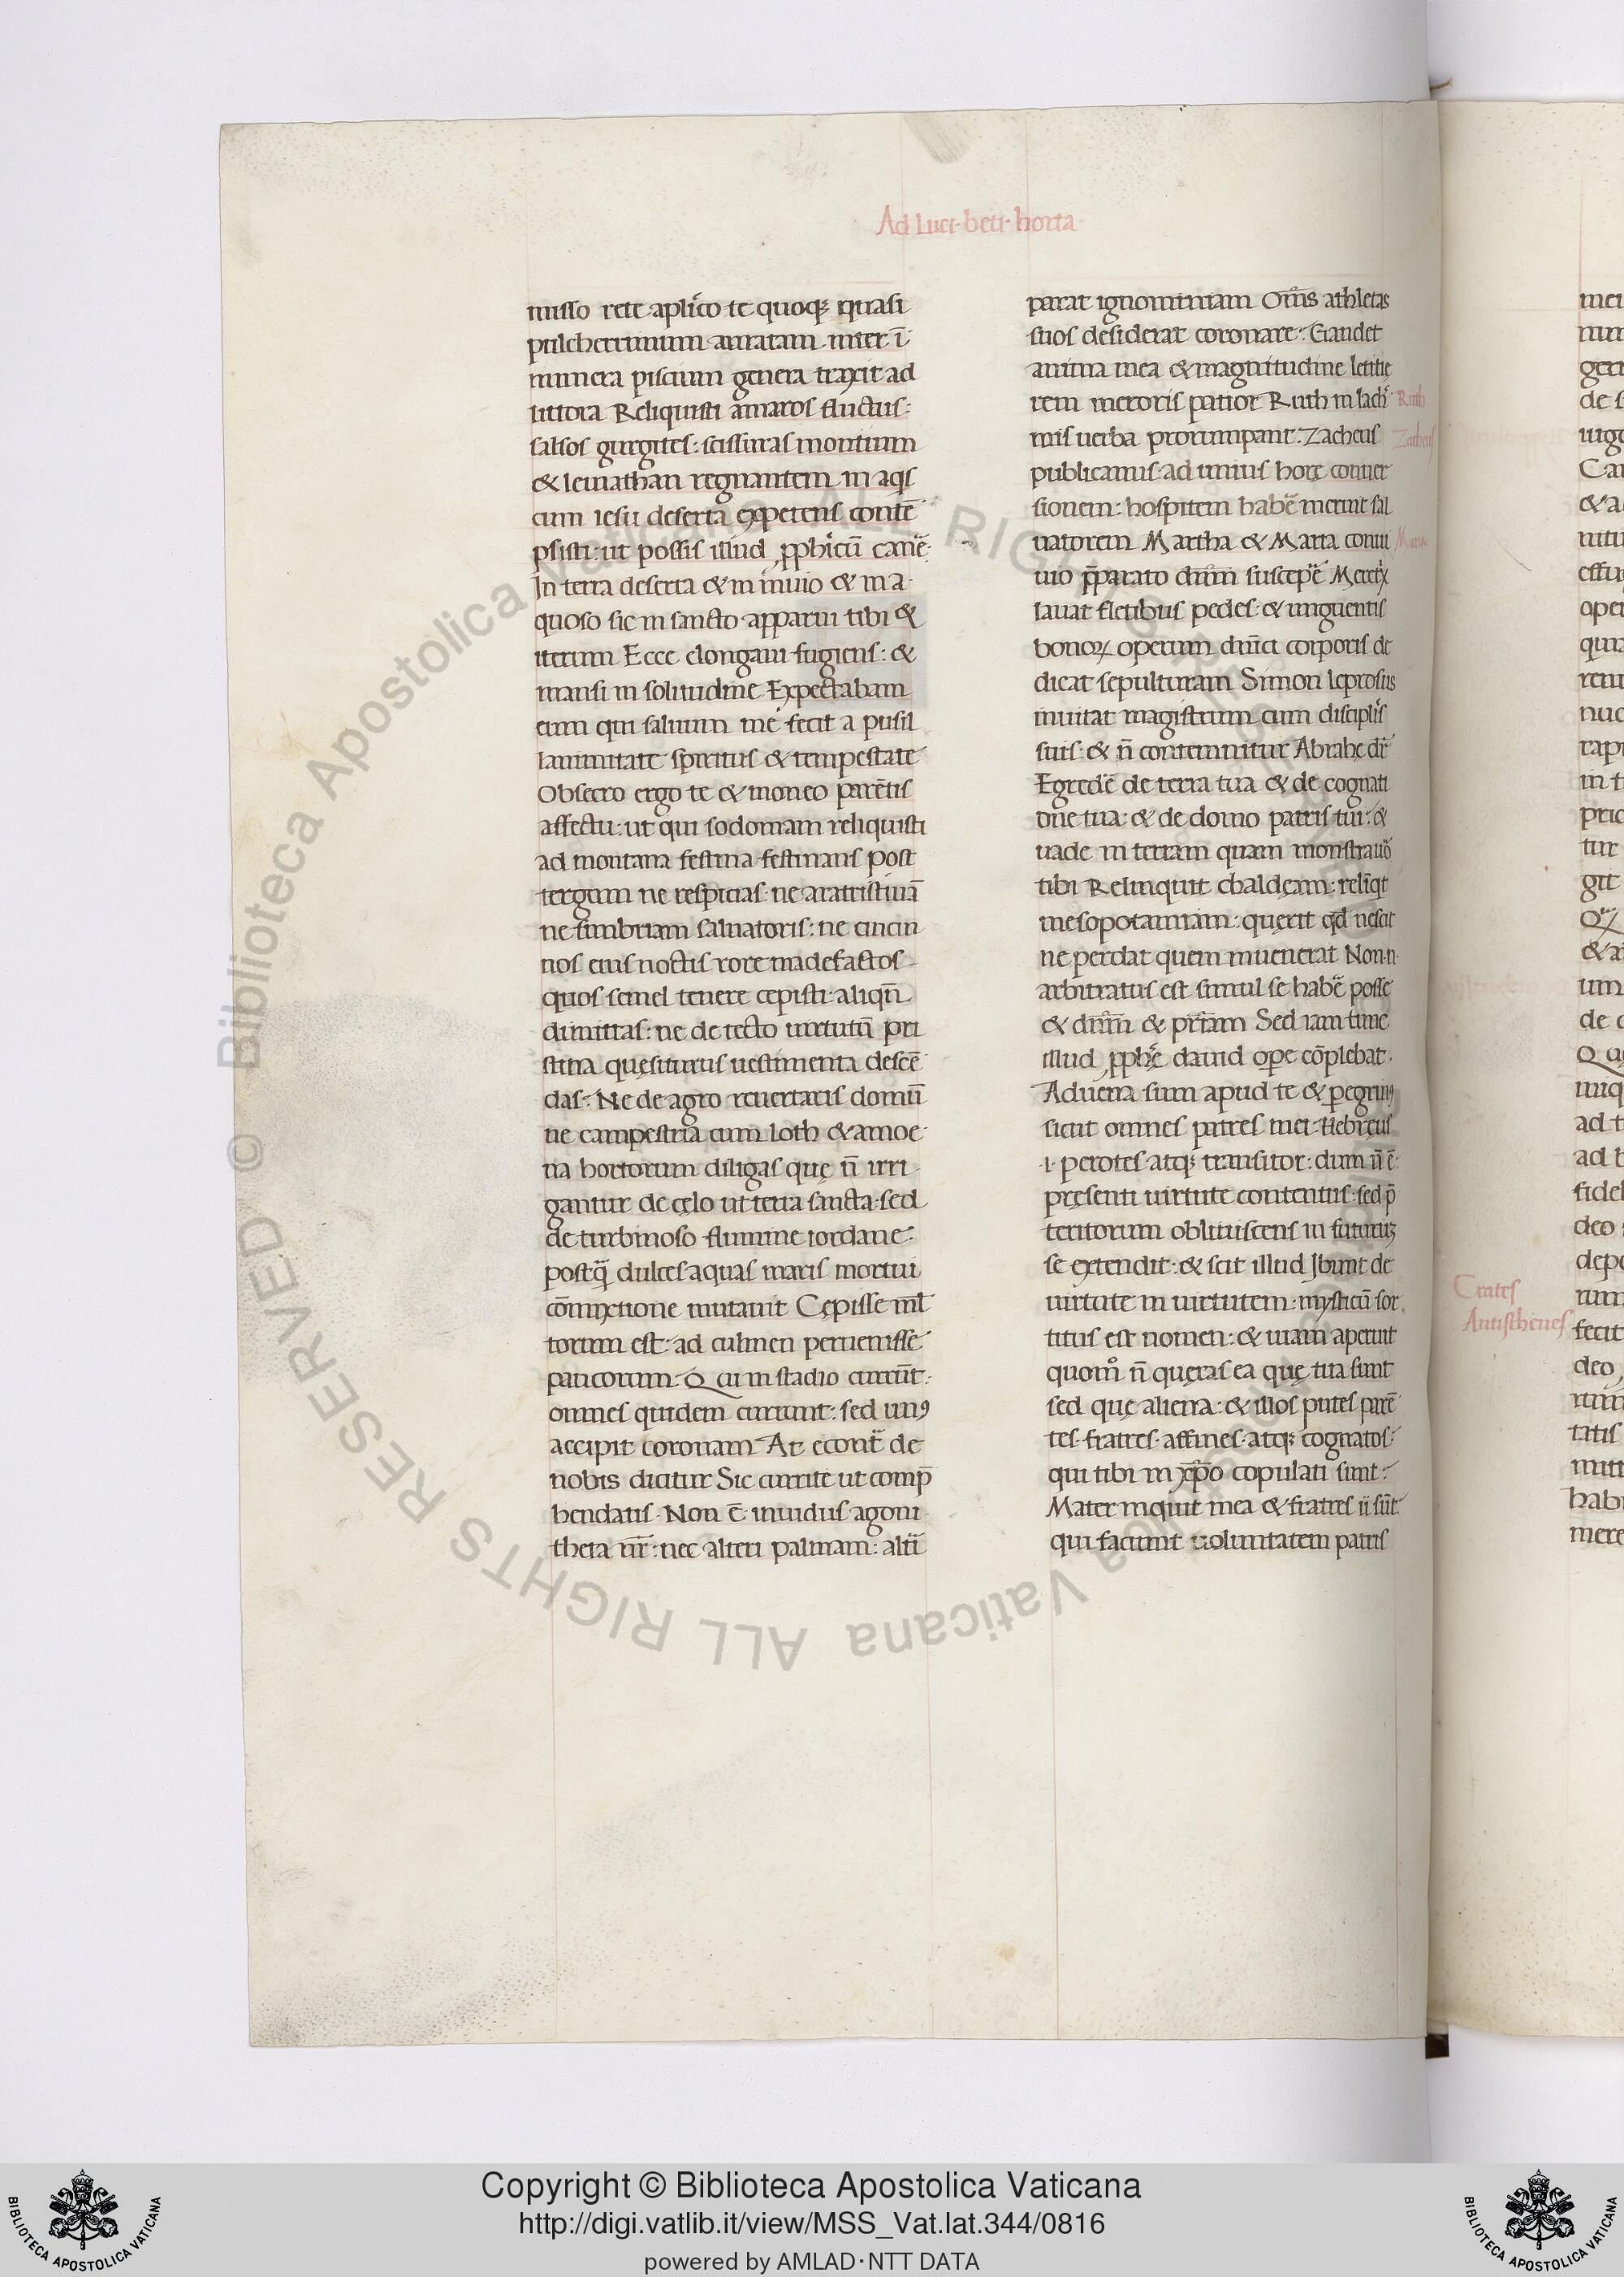 Ad Luci· beti· horta
misso rete aplico te quoq; quasi
pulcherrimum auratam inter ī
numera piscium genera traxit ad
littora Reliquisti amaros fluctus:
salsos gurgites: scissuras montium
& leuiathan regnantem in aqs
cum iesu deserta expetens contē
psisti: ut possis illud ꝓphicū canē·
In terra deserta & in inuio & in a·
quoso sic in sancto apparui tibi &
iterum Ecce elongaui fugiens: &
mansi in solitudine Expectabam
eum qui saluum me fecit a pusil
lanimitate spiritus & tempestate
Obsecro ergo te & moneo parētis
affectu: ut qui sodomam reliquisti
ad montana festina festinans post
tergum ne respicias· ne aratri stiuā
ne fimbriam saluatoris: ne cincin
nos eius noctis rore madefactos
quos semel tenere cepisti· aliqñ
dimittas: ne de tecto uirtutū pri
stina quęsiturus uestimenta descē
das: Ne de agro reuertaris domū
ne campestria cum loth & amoe·
na hortorum diligas quę ñ irri
gantur de cęlo ut terra sancta· sed
de turbinoso flumine iordane:
postq̃ dulces aquas maris mortui
cōmixtione mutauit Cępisse ml̃
torum est: ad culmen peruenisse
paucorum· Qui in stadio currūt·
omnes quidem currunt: sed unꝰ
accipit coronam At econt̃ de
nobis dicitur Sic currite ut comp̄
hendatis· Non ē inuidus agoni
theta nr̃: nec alteri palmam: alt̃i
parat ignominiam Om̃s athletas
suos desiderat coronare: Gaudet
anima mea & magnitudine letitię
rem meroris patior Ruth in lach·
Ruth
mis uerba prorumpant: Zacheus
Zacheus
publicanus ad unius horę conuer
sionem: hospitem habē meruit sal
uatorem Martha & Maria conui
Maria
uio p̄parato dn̄m suscepē Meretrix
lauat fletibus pedes: & unguentis
bonoꝝ operum dn̄ici corporis de
dicat sepulturam Simon leprosus
inuitat magistrum cum discipl̃s
suis: & ñ contemnitur Abrahę dr̃
Egredē de terra tua & de cognati
one tua: & de domo patris tui: &
uade in terram quam monstrauō
tibi Relinquit chaldęam: reliq̇t
mesopotamiam: quęrit qd̃ nescit
ne perdat quem inuenerat Non n
arbitratus est simul se habē posse
& dn̄m & pr̃iam Sed iam tunc
illud ꝓphę dauid ope cōplebat·
Aduena sum apud te & ꝑegrinꝰ
sicut omnes patres mei: Hebręus
·i· perotes· atq; transitor: dum ñ ē:
pręsenti uirtute contentus: sed p̄
teritorum obliuiscens in futuruꝫ
se extendit: & scit illud Ibunt de
uirtute in uirtutem· mysticū sor
titus est nomen: & uiam aperuit
quom̊ ñ quęras ea quę tua sunt
sed quę aliena: & illos putes parē
tes· fratres· affines· atq; cognatos:
qui tibi in xp̄o copulati sunt:
Mater inquit mea & fratres ii sūt
qui faciunt uoluntatem patris
Crates
Antisthenes
© Biblioteca Apostolica Vaticana ALL RIGHTS RESERVED
Copyright © Biblioteca Apostolica Vaticana
http://digi.vatlib.it/view/MSS_Vat.lat.344/0816
powered by AMLAD·NTT DATA
BIBLIOTECA APOSTOLICA VATICANA
BIBLIOTECA APOSTOLICA VATICANA